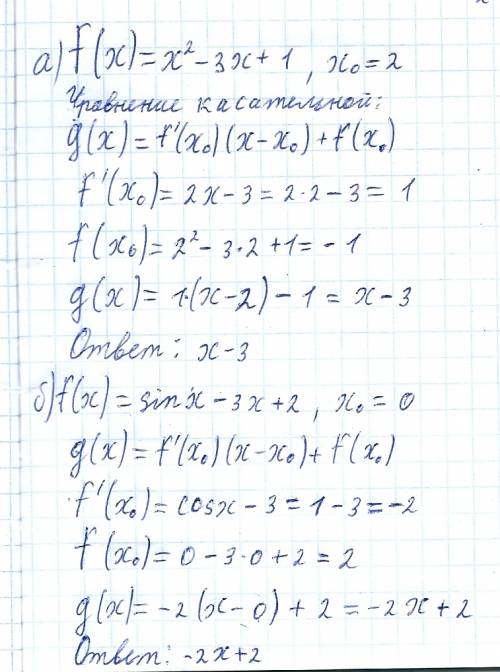 а) f(x) = x² - 3x + 1 , x₀ = 2
Уравнение касательной:
g(x) = f'(x₀)(x - x₀) + f(x₀)
f'(x₀) = 2x - 3 = 2·2 - 3 = 1
f(x₀) = 2² - 3·2 + 1 = - 1
g(x) = 1·(x - 2) - 1 = x - 3
Ответ: x - 3
б) f(x) = sin x - 3x + 2 , x₀ = 0
g(x) = f'(x₀)(x - x₀) + f(x₀)
f'(x₀) = cos x - 3 = 1 - 3 = -2
f(x₀) = 0 - 3·0 + 2 = 2
g(x) = -2(x - 0) + 2 = -2x + 2
Ответ: -2x + 2